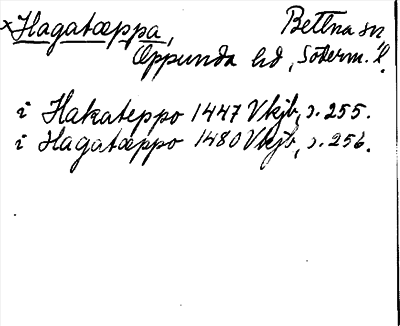 ×Hagatæppa, Bettna sn,
Oppunda hd, Söderm. l.
i Hakateppo 1447 Vkjb, s. 255.
i Hagatæppo 1480 Vkjb, s. 256.